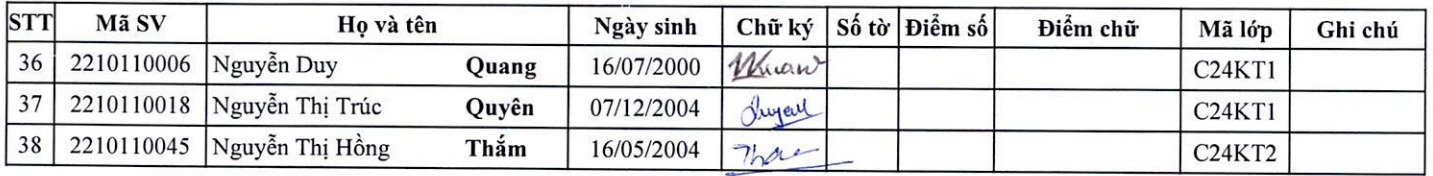 STT Mã SV Họ và tên Ngày sinh Chữ ký Số tờ Điểm số Điểm chữ Mã lớp Ghi chú
36 2210110006 Nguyễn Duy Quang 16/07/2000 C24KT1
37 2210110018 Nguyễn Thị Trúc Quyên 07/12/2004 Quyen C24KT1
38 2210110045 Nguyễn Thị Hồng Thắm 16/05/2004 C24KT2